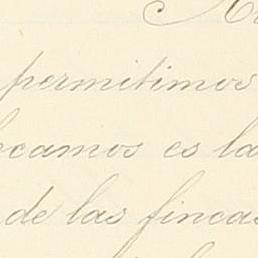 permitimos
ocamos es la
de las fincas